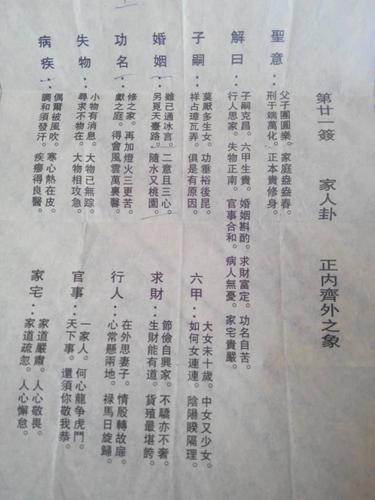 第廿一簽 家人卦 正內齊外之象
聖意：父子團圓樂。家庭盎盎春。
刑于端萬化。正本貴修身。
解曰：子嗣克昌。六甲生貴。婚姻斟酌。求財富定。功名自苦。
行人思家。失物正南。官事合和。病人無憂。家宅貴嚴。
子嗣：莫厭多生女。功垂裕後昆。
祥占璋瓦弄。俱是有原因。
六甲：大女未十歲。中女又少女。
如何女連連。陰陽睽隔理。
婚姻：雖已通冰言。二意且三心。
另覓天臺路。隨水又桃園。
求財：節儉自興家。不驕亦不奢。
生財能有道。貨殖最堪誇。
功名：修之家。再加燈火三更苦。
獻之庭。得會風雲萬里馨。
行人：在外思妻子。情殷轉故扉。
心常懸兩地。祿馬日旋歸。
失物：小物有消息。大物已無踪。
尋求不物在。大物相攻急。
官事：一家人。何心龍爭虎鬥。
天下事。還須你敬我恭。
病疾：偶爾被風吹。寒心熱在皮。
調和須發汗。疾瘳得良醫。
家宅：家道嚴肅。人心敬畏。
家道疏忽。人心懈怠。